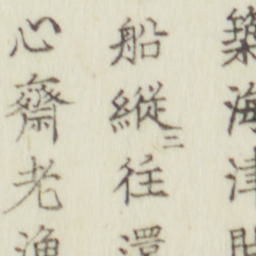 築海津
船縦三往還
心齋老漁